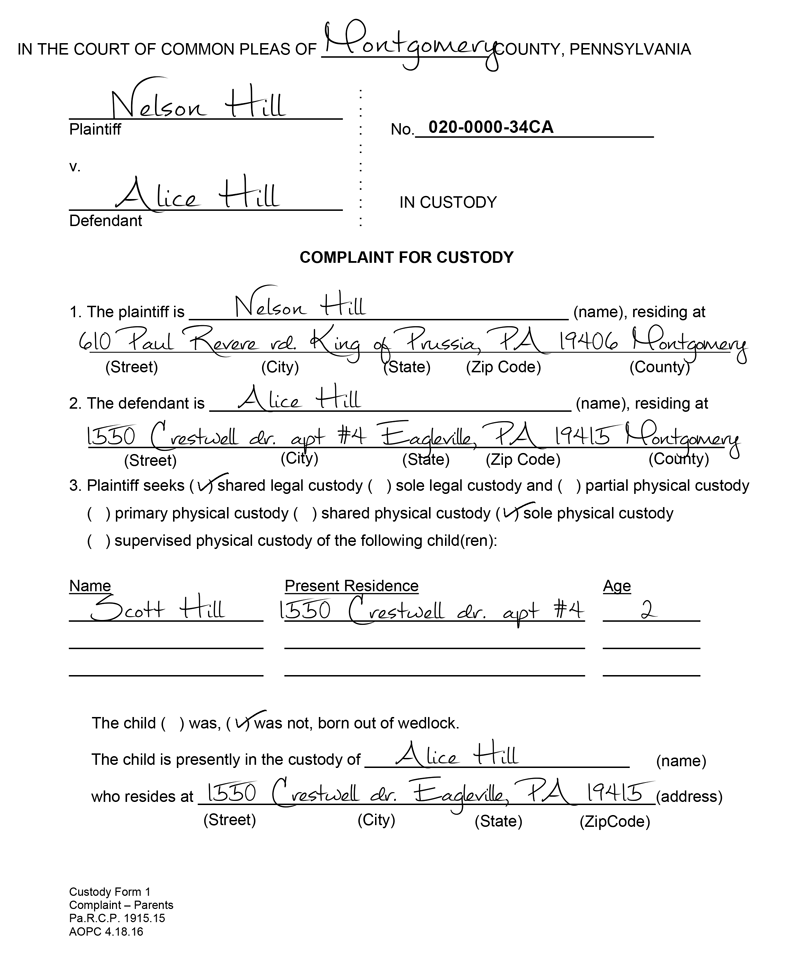 IN THE COURT OF COMMON PLEAS OF Montgomery COUNTY, PENNSYLVANIA
Nelson Hill
Plaintiff
No. 020-0000-34CA
v.
Alice Hill
Defendant
IN CUSTODY
COMPLAINT FOR CUSTODY
1. The plaintiff is Nelson Hill (name), residing at
610 Paul Revere rd. King of Prussia, PA 19406 Montgomery
(Street) (City) (State) (Zip Code) (County)
2. The defendant is Alice Hill (name), residing at
1550 Crestwell dr. apt #4 Eagleville, PA 19415 Montgomery
(Street) (City) (State) (Zip Code) (County)
3. Plaintiff seeks (✓) shared legal custody ( ) sole legal custody and ( ) partial physical custody
( ) primary physical custody ( ) shared physical custody (✓) sole physical custody
( ) supervised physical custody of the following child(ren):
Name Present Residence Age
Scott Hill 1550 Crestwell dr. apt #4 2
The child ( ) was, (✓) was not, born out of wedlock.
The child is presently in the custody of Alice Hill (name)
who resides at 1550 Crestwell dr. Eagleville, PA 19415 (address)
(Street) (City) (State) (ZipCode)
Custody Form 1
Complaint – Parents
Pa.R.C.P. 1915.15
AOPC 4.18.16